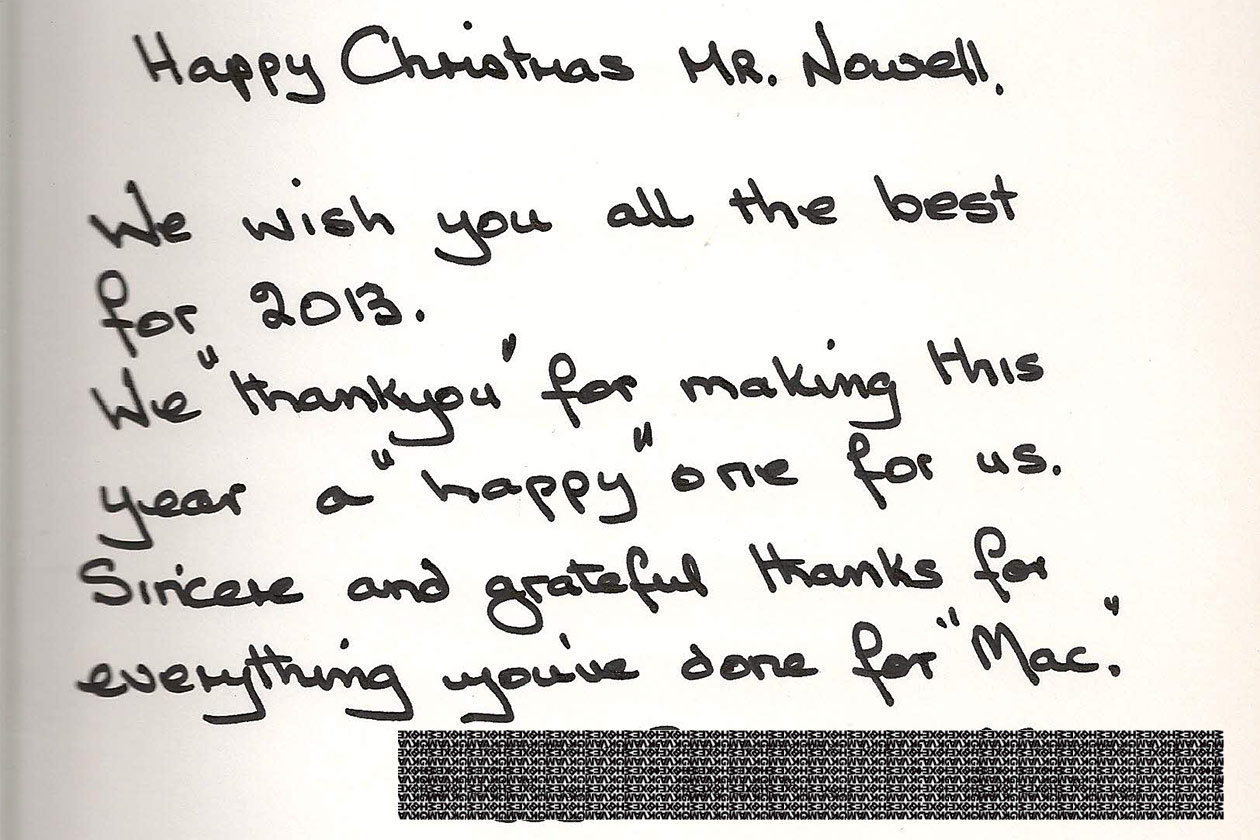 Happy Christmas MR. Nowell.
We wish you all the best
for 2013.
We "thankyou" for making this
year a "happy" one for us.
Sincere and grateful thanks for
everything you've done for "Mac."